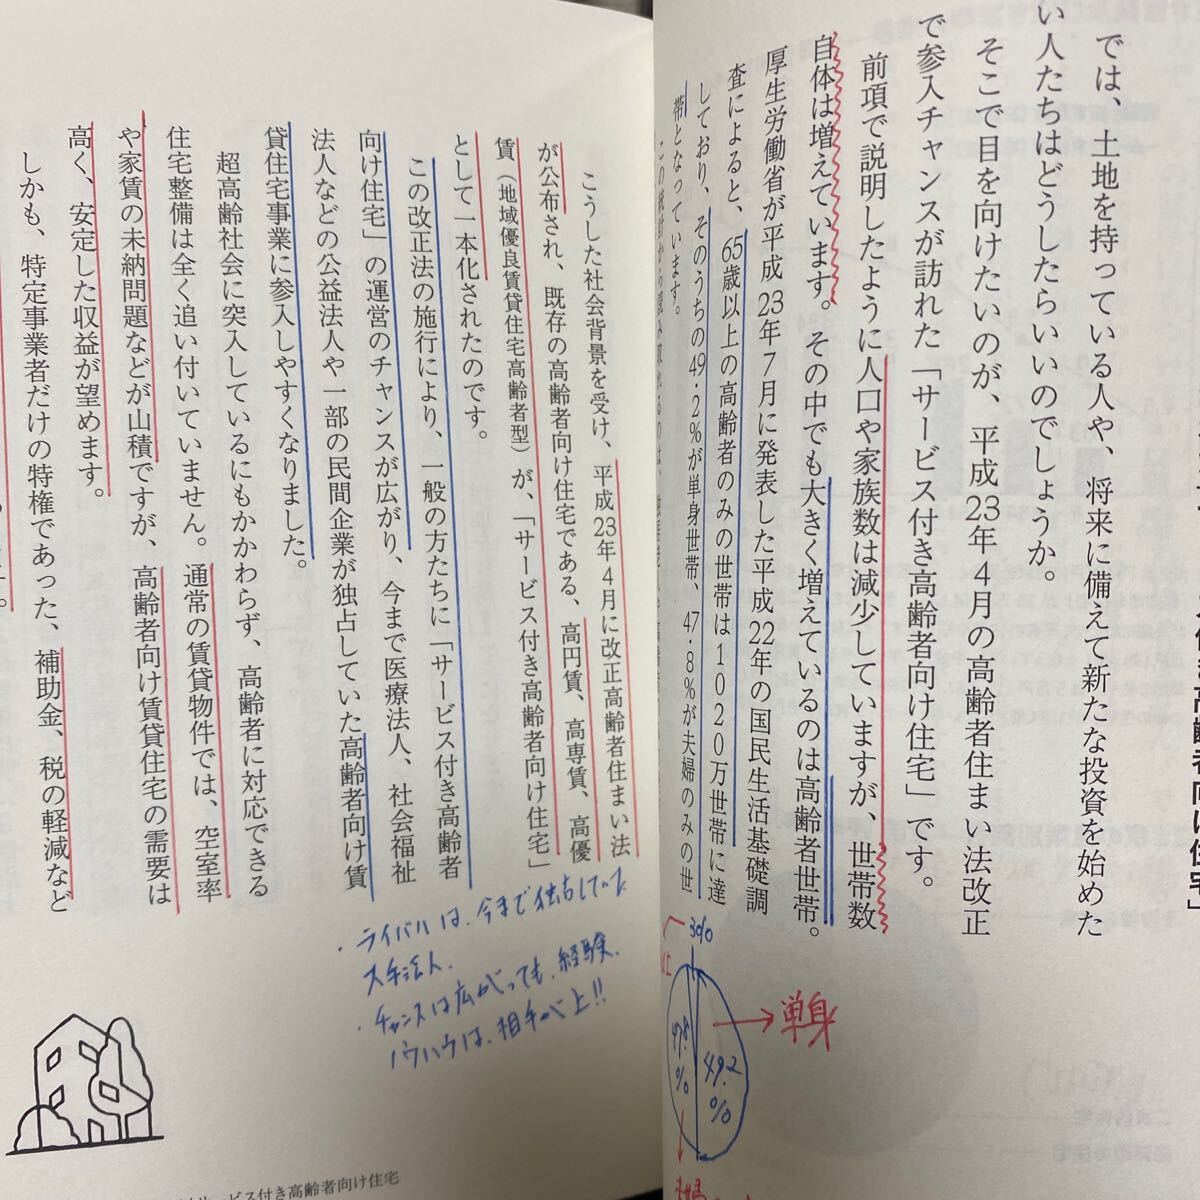 では、土地を持っている人や、将来に備えて新たな投資を始めた
い人たちはどうしたらいいのでしょうか。
そこで目を向けたいのが、平成23年4月の高齢者住まい法改正
で参入チャンスが訪れた「サービス付き高齢者向け住宅」です。
前項で説明したように人口や家族数は減少していますが、世帯数
自体は増えています。その中でも大きく増えているのは高齢者世帯。
厚生労働省が平成23年7月に発表した平成22年の国民生活基礎調
査によると、65歳以上の高齢者のみの世帯は1020万世帯に達
しており、そのうちの49・2％が単身世帯、47・8％が夫婦のみの世
帯となっています。
3%
単身
47.8%
49.2%
こうした社会背景を受け、平成23年4月に改正高齢者住まい法
が公布され、既存の高齢者向け住宅である、高円賃、高専賃、高優
賃（地域優良賃貸住宅高齢者型）が、「サービス付き高齢者向け住宅」
として一本化されたのです。
この改正法の施行により、一般の方たちに「サービス付き高齢者
向け住宅」の運営のチャンスが広がり、今まで医療法人、社会福祉
法人などの公益法人や一部の民間企業が独占していた高齢者向け賃
貸住宅事業に参入しやすくなりました。
超高齢社会に突入しているにもかかわらず、高齢者に対応できる
住宅整備は全く追い付いていません。通常の賃貸物件では、空室率
や家賃の未納問題などが山積ですが、高齢者向け賃貸住宅の需要は
高く、安定した収益が望めます。
しかも、特定事業者だけの特権であった、補助金、税の軽減など
・ライバルは、今まで独占していた
大手法人.
・チャンスは広がっても、経験、
ノウハウは、相手が上!!
サービス付き高齢者向け住宅